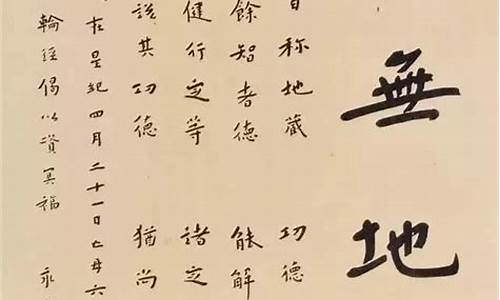 無地
日称地藏 功德
餘智者德 能解
健行定等 諸定
說其功德 猶尚
在星紀四月二十一日亡母六
輪經偈以資冥福 永